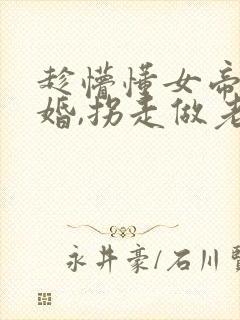 趁懵懂女帝
婚,拐走做老
永井豪/石川賢